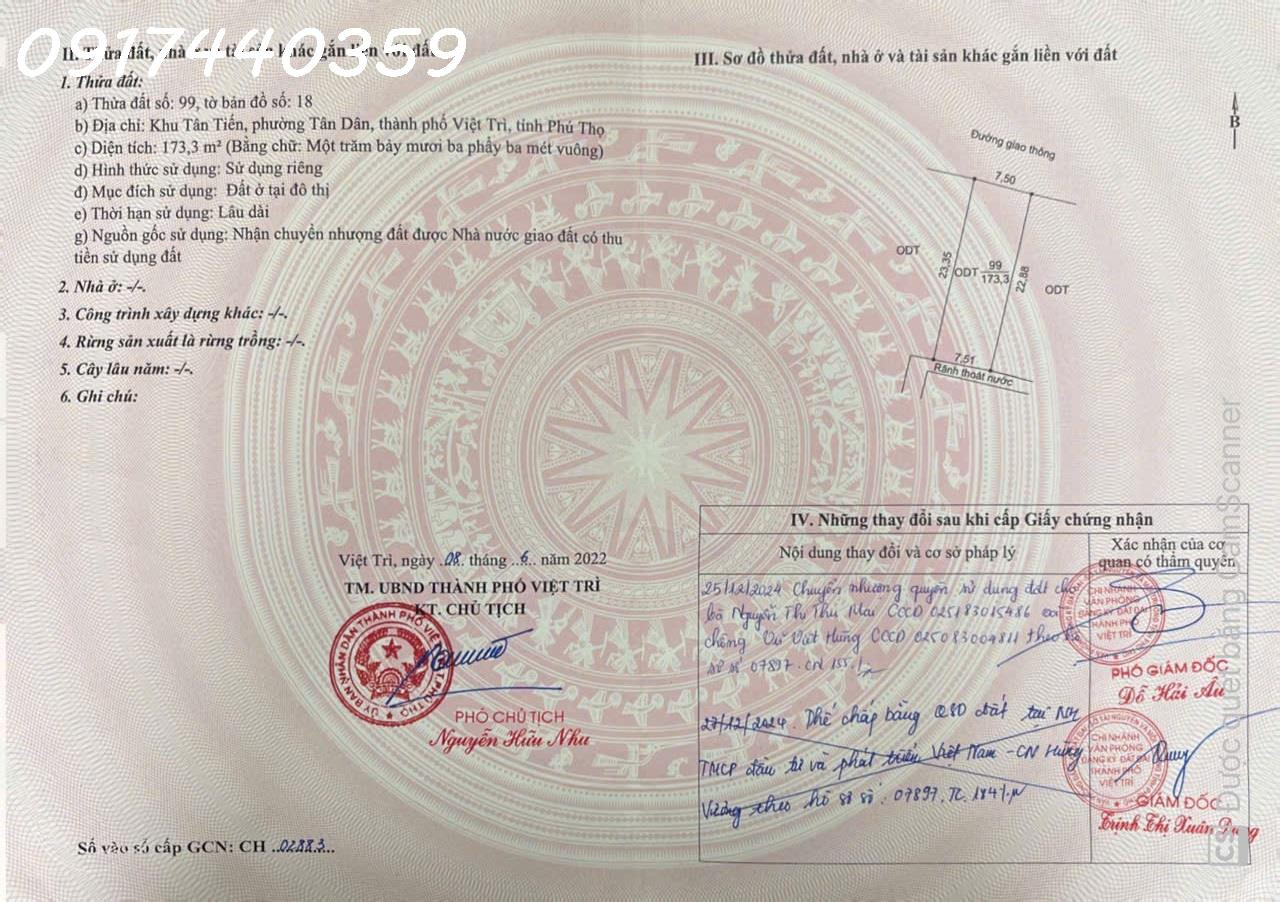 0917440359
II. Thửa đất, nhà ở và tài sản khác gắn liền với đất
1. Thửa đất:
a) Thửa đất số: 99, tờ bản đồ số: 18
b) Địa chỉ: Khu Tân Tiến, phường Tân Dân, thành phố Việt Trì, tỉnh Phú Thọ
c) Diện tích: 173,3 m² (Bằng chữ: Một trăm bảy mươi ba phẩy ba mét vuông)
d) Hình thức sử dụng: Sử dụng riêng
đ) Mục đích sử dụng: Đất ở tại đô thị
e) Thời hạn sử dụng: Lâu dài
g) Nguồn gốc sử dụng: Nhận chuyển nhượng đất được Nhà nước giao đất có thu
tiền sử dụng đất
2. Nhà ở: -/-.
3. Công trình xây dựng khác: -/-.
4. Rừng sản xuất là rừng trồng: -/-.
5. Cây lâu năm: -/-.
6. Ghi chú:
Việt Trì, ngày .08. tháng ..6.. năm 2022
TM. UBND THÀNH PHỐ VIỆT TRÌ
KT. CHỦ TỊCH
ỦY BAN NHÂN DÂN THÀNH PHỐ VIỆT TRÌ
PHÚ THỌ
PHÓ CHỦ TỊCH
Nguyễn Hữu Nhu
Số vào sổ cấp GCN: CH ..02883..
III. Sơ đồ thửa đất, nhà ở và tài sản khác gắn liền với đất
B
Đường giao thông
7,50
ODT
23,35
ODT 99
173,3
22,88
ODT
7,51
Rãnh thoát nước
IV. Những thay đổi sau khi cấp Giấy chứng nhận
Nội dung thay đổi và cơ sở pháp lý
Xác nhận của cơ
quan có thẩm quyền
25/12/2024 Chuyển nhượng quyền sử dụng đất cho
bà Nguyễn Thị Thu Mai CCCD 025183015486 và
chồng Vũ Việt Hưng CCCD 025083004811 theo hồ
sơ số 07897.CN 155./.
CHI NHÁNH
VĂN PHÒNG
ĐĂNG KÝ ĐẤT ĐAI
THÀNH PHỐ
VIỆT TRÌ
PHÓ GIÁM ĐỐC
Đỗ Hải Âu
27/12/2024. Thế chấp bằng QSD đất tại NH
TMCP đầu tư và phát triển Việt Nam - CN Hùng
Vương theo hồ sơ số: 07897.TC.184/.
CHI NHÁNH
VĂN PHÒNG
ĐĂNG KÝ ĐẤT ĐAI
THÀNH PHỐ
VIỆT TRÌ
GIÁM ĐỐC
Trịnh Thị Xuân Dung
CS Được quét bằng CamScanner